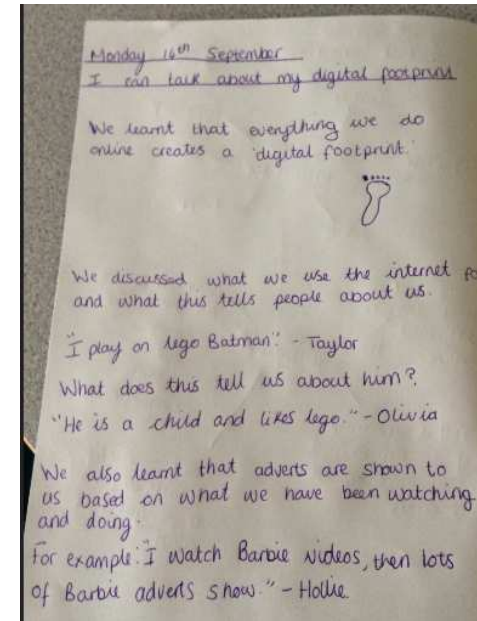 Monday 16th September
I can talk about my digital footprint
We learnt that everything we do
online creates a 'digital footprint.'
We discussed what we use the internet fo
and what this tells people about us.
"I play on lego Batman". - Taylor
What does this tell us about him?
"He is a child and likes lego." - Olivia
We also learnt that adverts are shown to
us based on what we have been watching
and doing.
For example: "I watch Barbie videos, then lots
of Barbie adverts show." - Hollie.